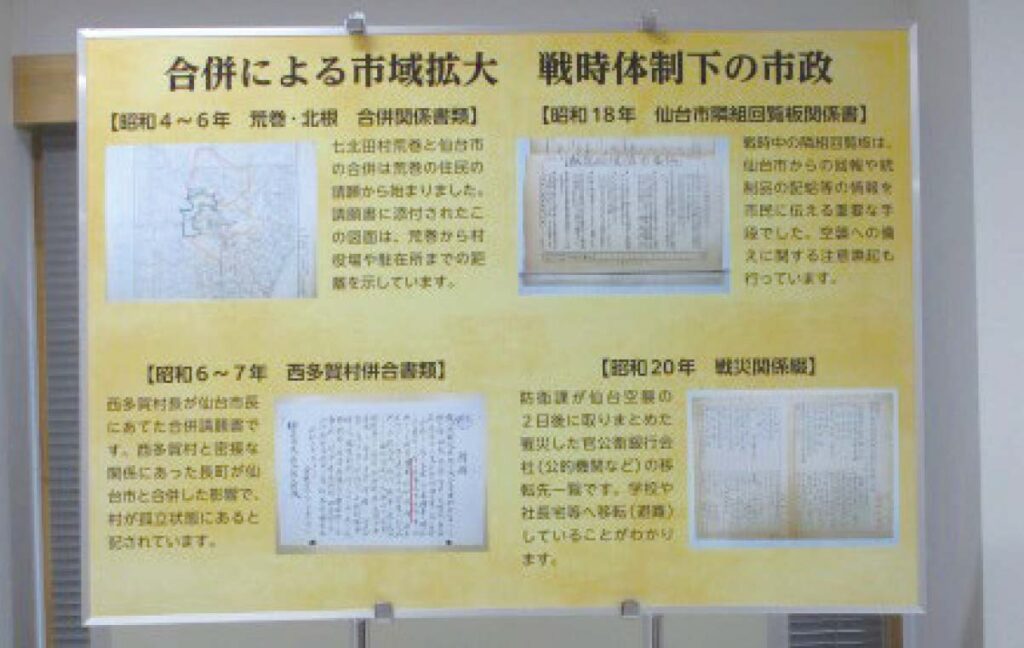 合併による市域拡大
【昭和４～６年　荒巻・北根　合併関係書類】
七北田村荒巻と仙台市
の合併は荒巻の住民の
請願から始まりました。
請願書に添付されたこ
の図面は、荒巻から村
役場や駐在所までの距
離を示しています。
【昭和６～７年　西多賀村併合書類】
西多賀村長が仙台市長
にあてた合併請願書で
す。西多賀村と密接な
関係にあった長町が仙
台市と合併した影響で、
村が孤立状態にあると
記されています。
戦時体制下の市政
【昭和18年　仙台市隣組回覧板関係書】
戦時中の隣組回覧板は、
仙台市からの回報や統
制品の配給等の情報を
市民に伝える重要な手
段でした。空襲への備
えに関する注意喚起も
行っています。
【昭和20年　戦災関係綴】
防衛課が仙台空襲の
２日後に取りまとめた
戦災した官公衙銀行会
社（公的機関など）の移
転先一覧です。学校や
社長宅等へ移転（避難）
していることがわかり
ます。